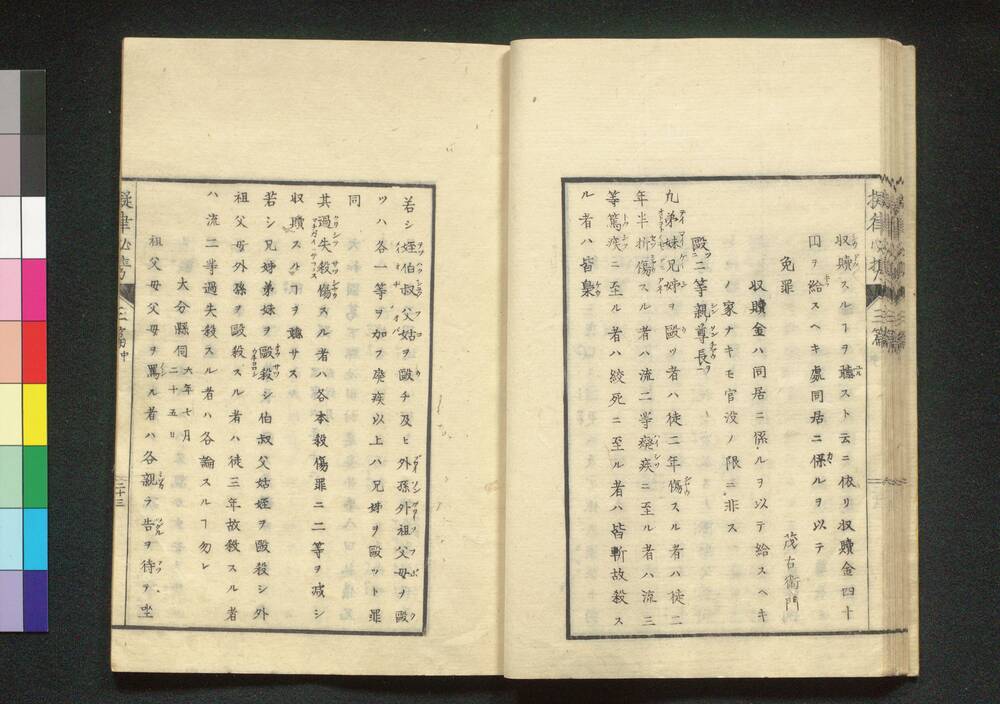 収贖スルヿヲ聽スト云ニ依リ収贖金四十
円ヲ給スヘキ處同居ニ係ルヲ以テ
免罪
茂右衛門
収贖金ハ同居ニ係ルヲ以テ給スヘキ
ノ家ナキモ官没ノ限ニ非ス
毆二等親尊長
凡弟妹兄姉ヲ毆ツ者ハ徒二年傷スル者ハ徒二
年半折傷スル者ハ流二等癈疾ニ至ル者ハ流三
等篤疾ニ至ル者ハ絞死ニ至ル者ハ皆斬故殺ス
ル者ハ皆梟
若シ姪伯叔父姑ヲ毆チ及ヒ外孫外祖父母ヲ毆
ツハ各一等ヲ加フ癈疾以上ハ兄姉ヲ毆ツト罪
同
其過失殺傷スル者ハ各本殺傷罪ニ二等ヲ减シ
収贖スルヿヲ聽サス
若シ兄姉弟妹ヲ毆殺シ伯叔父姑姪ヲ毆殺シ外
祖父母外孫ヲ毆殺スル者ハ徒三年故殺スル者
ハ流二等過失殺スル者ハ各論スルヿ勿レ
大分縣伺 六年七月二十五日
祖父母父母ヲ罵ル者ハ各親ラ告ヲ待ヲ坐
三篇中
二十三